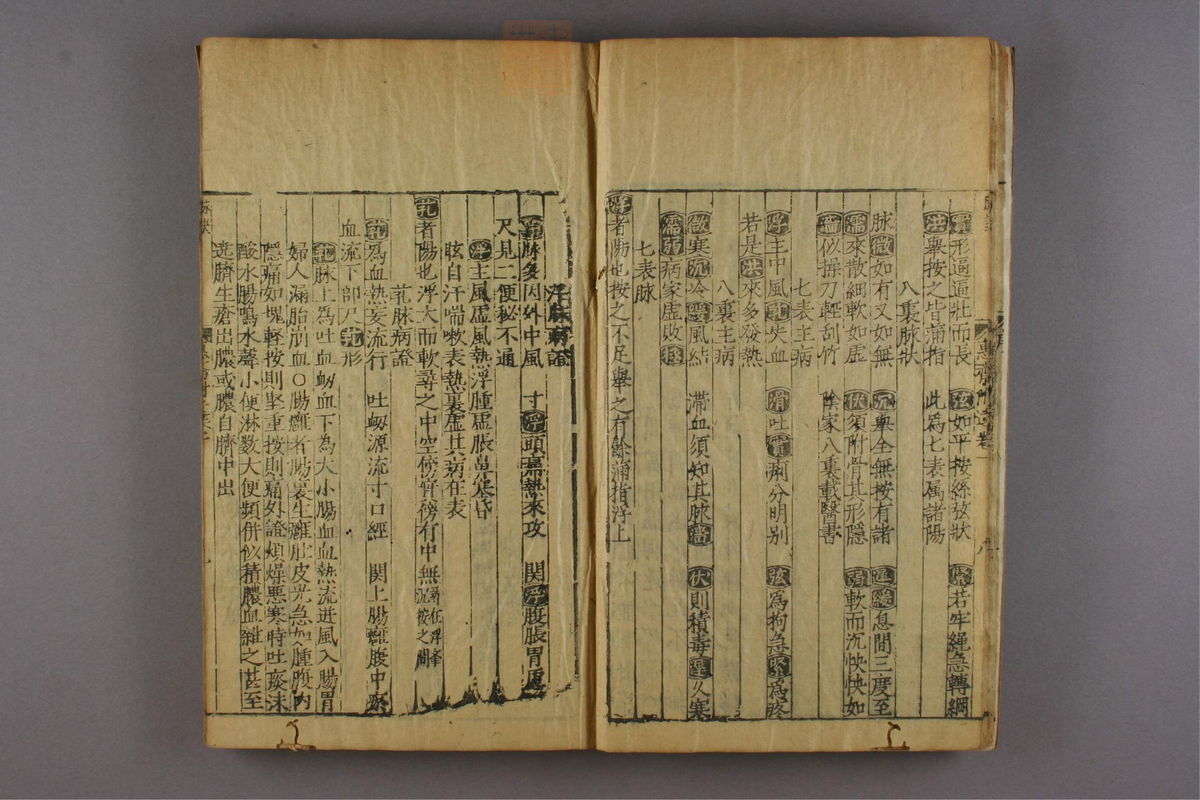 實形逼逼壯而長 弦如平按絲弦狀 緊若牢繩急轉綱
洪舉按之皆滿指 此為七表属諸陽
八裏脉狀
脉微如有又如無 沉舉全無按有諸 遲緩息間三度至
濡來散細軟如虛 伏須附骨其形隱 弱軟而沉怏怏如
似操刀輕刮竹 陰家八裏載醫書
七表主病
浮主中風芤失血 滑吐實痢分明別 弦為拘急緊為疼
若是洪來多發熱
八裏主病
微寒沉冷風結 滯血須知其脉 伏則積毒久寒
濡弱病家虛敗
七表脉
浮者陽也按之不足舉之有餘滿指浮上
浮脉病證
脉多因外中風 寸浮頭痛熱來攻 関浮腹脹胃虛
尺見二便秘不通
浮主風虛風熱浮腫虛脹鼻塞昏
眩自汗喘嗽表熱裏虛共病在表
芤者陽也浮大而軟尋之中空傍實傍有中無芤在浮舉沉按之間
芤脉病證
芤為血熱妄流行 吐衂源流寸口經 関上腸癰腹中瘀
血流下部尺芤形
芤脉上為吐血衂血下為大小腸血血熱流迸風入腸胃
婦人漏胎崩血○腸癰者腸裏生癰肚皮光急如腫腹內
隱痛如塊輕按則堅重按則痛外證煩燥悪寒時吐痰沫
酸水腸鳴水聲小便淋数大便類併似積膿血雜之甚至
遶臍生瘡出膿或膿自臍中出
脉訣